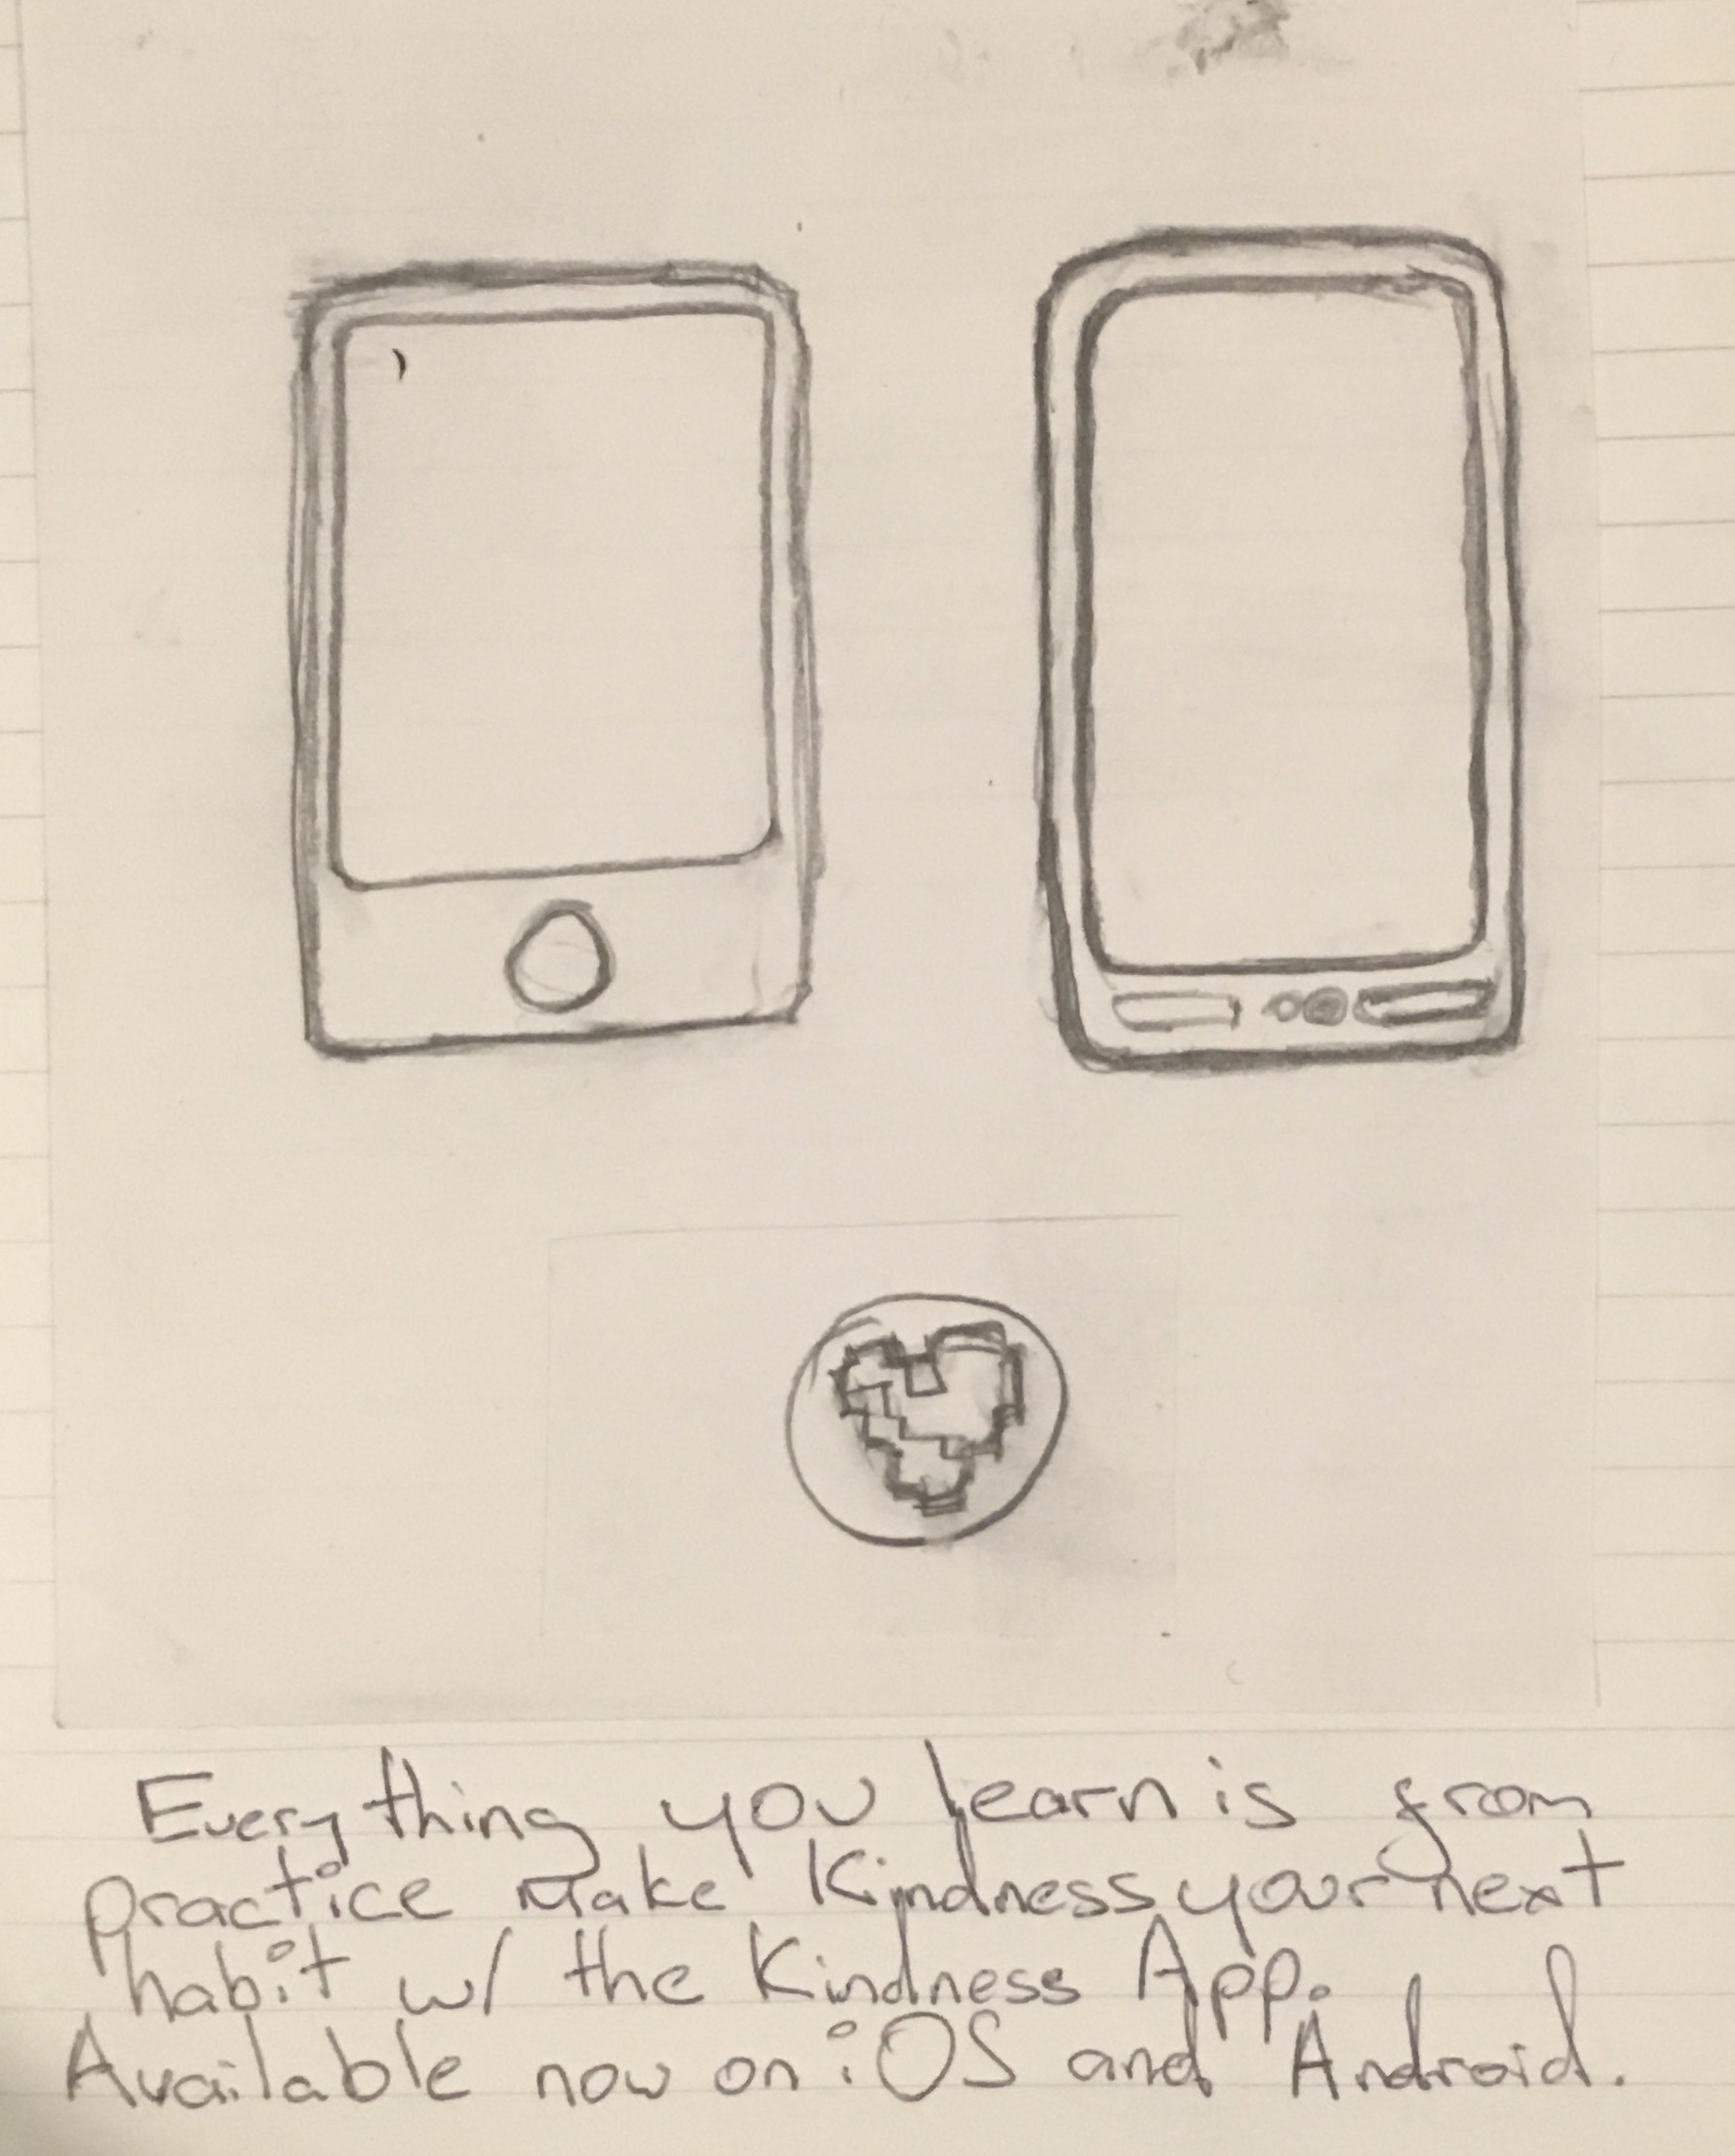 Everything you learn is from
practice Make Kindness your next
habit w/ the Kindness App.
Available now on iOS and Android.